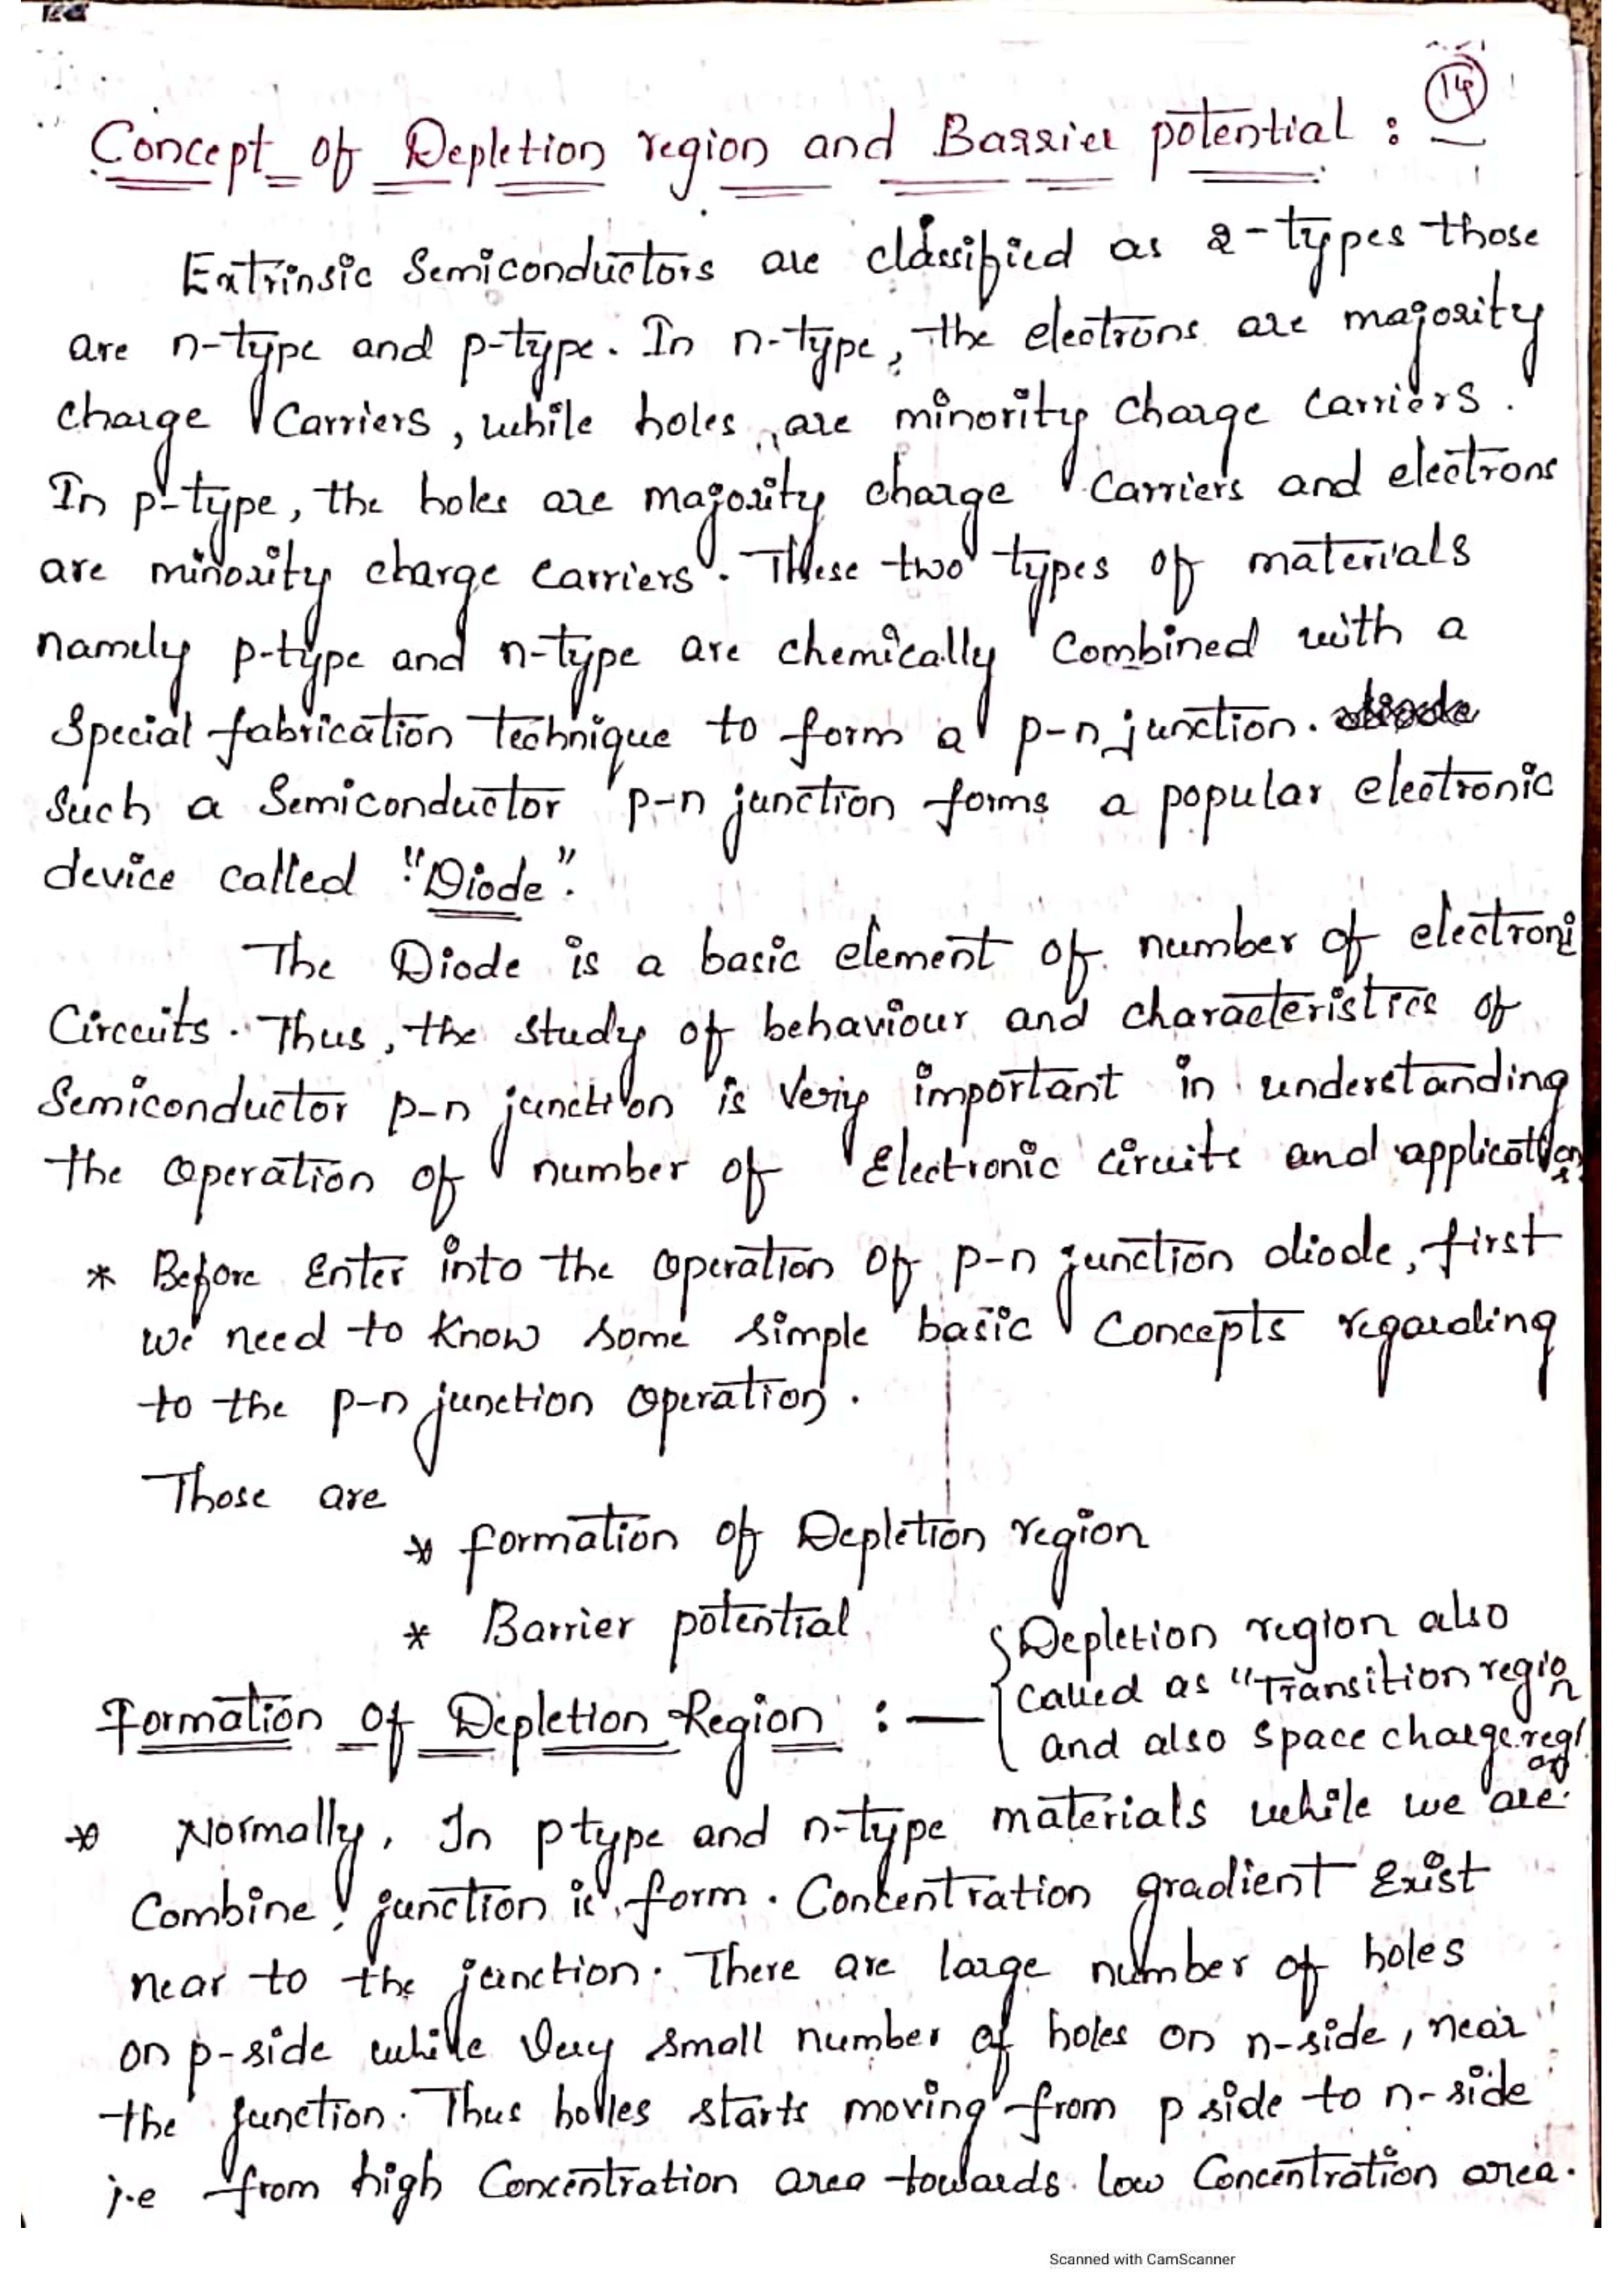 14
Concept of Depletion region and Barrier potential :
Extrinsic Semiconductors are classified as 2-types those
are n-type and p-type. In n-type, the electrons are majority
charge Carriers, while holes are minority charge carriers.
In p-type, the holes are majority charge Carriers and electrons
are minority charge carriers. These two types of materials
namely p-type and n-type are chemically Combined with a
Special fabrication technique to form a p-n junction.
Such a Semiconductor p-n junction forms a popular electronic
device called "Diode".
The Diode is a basic element of number of electroni
Circuits. Thus, the study of behaviour and characteristics of
Semiconductor p-n junction is Very important in understanding
the operation of number of Electronic circuits and application
* Before Enter into the operation of p-n junction diode, first
we need to know some simple basic Concepts regarding
to the p-n junction operation.
Those are
* formation of Depletion region
* Barrier potential
{Depletion region also
called as "Transition region
and also space charge region
Formation of Depletion Region :—
* Normally, In p type and n-type materials while we are
Combine, junction is form. Concentration gradient Exist
near to the junction. There are large number of holes
on p-side while Very small number of holes on n-side, near
the junction. Thus holles starts moving from p side to n-side
i.e from high Concentration area towards low Concentration area.
Scanned with CamScanner